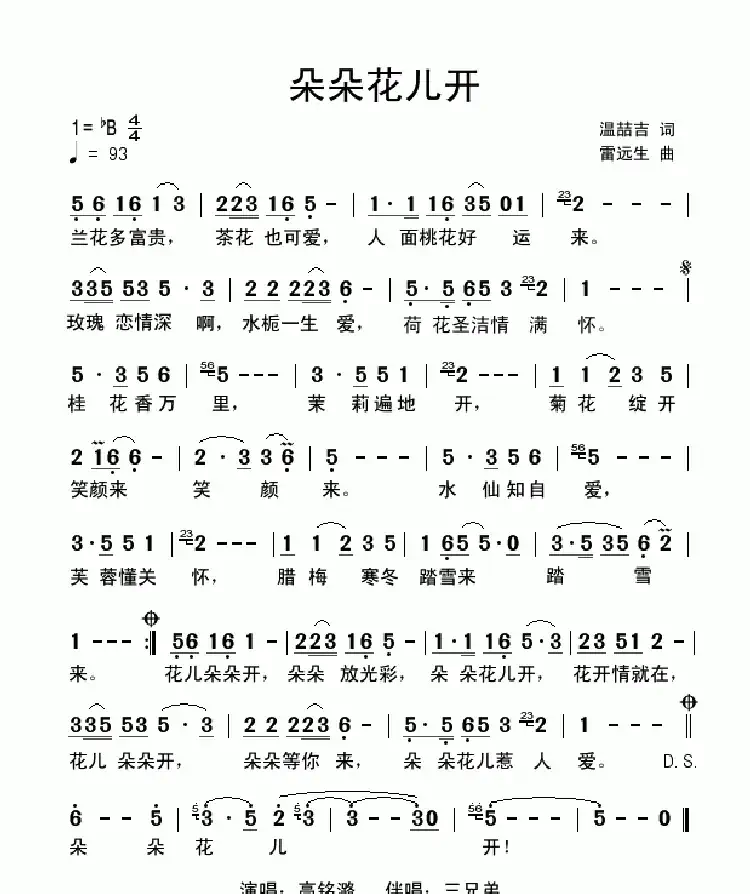 朵朵花儿开
1= ♭B 4/4
温喆吉 词
♩ = 93
雷远生 曲
5 6 1 6 1 3 | 2 2 3 1 6 5 - | 1 · 1 1 6 3 5 0 1 | 23 2 - - - |
兰花多富贵， 茶花 也可爱， 人 面桃花好 运 来。
3 3 5 5 3 5 · 3 | 2 2 2 2 3 6 - | 5 · 5 6 5 3 23 2 | 1 - - - |
玫瑰 恋情深 啊，水栀一生 爱， 荷 花圣洁情 满 怀。
5 · 3 5 6 | 56 5 - - - | 3 · 5 5 1 | 23 2 - - - | 1 1 2 3 5 |
桂 花香万 里， 茉 莉遍地 开， 菊 花 绽开
2 1 6 6 - | 2 · 3 3 6 | 5 - - - | 5 · 3 5 6 | 56 5 - - - |
笑颜来 笑 颜 来。 水 仙知自 爱，
3 · 5 5 1 | 23 2 - - - | 1 1 2 3 5 | 1 6 5 5 · 0 | 3 · 5 3 5 6 2 |
芙 蓉懂关 怀， 腊 梅 寒冬 踏雪来 踏 雪
1 - - - :| 5 6 1 6 1 - | 2 2 3 1 6 5 - | 1 · 1 1 6 5 · 3 | 2 3 5 1 2 - |
来。 花儿朵朵开， 朵朵 放光彩， 朵 朵花儿开， 花开情就在，
3 3 5 5 3 5 · 3 | 2 2 2 2 3 6 - | 5 · 5 6 5 3 23 2 | 1 - - - ||
花儿 朵朵开， 朵朵等你 来， 朵 朵花儿惹 人 爱。 D.S.
6 - - 5 | 5 3 · 5 2 5 3 | 3 - - 3 0 | 56 5 - - - | 5 - - 0 ||
朵 朵 花 儿 开！
演唱：高铭潞 伴唱：三兄弟